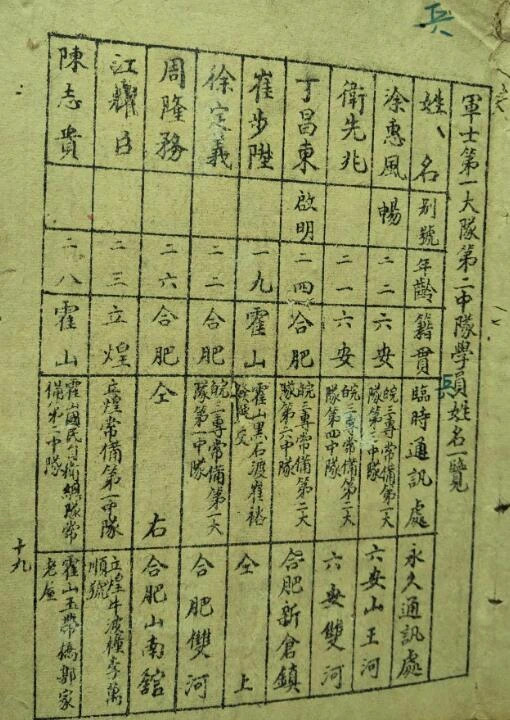 兵
軍士第一大隊第二中隊學員姓名一覽
姓、名 別號 年齡 籍貫 臨時通訊處 永久通訊處
兵
涂惠風 暢 二二 六安 皖三專常備第一大隊第三中隊 六安山王河
衛先兆 二一 六安 皖三專常備第二大隊第四中隊 六安雙河
丁昌東 啟明 二四 合肥 皖三專常備第二大隊第六中隊 合肥新倉鎮
崔步陞 一九 霍山 霍山黑石渡崔裕 仝上
徐定義 二二 合肥 皖一專常備第一大隊第一中隊 合肥雙河
周隆務 二六 合肥 仝右 合肥山南舘
江耀臣 二三 立煌 立煌常備第一中隊 立煌牛波糧李萬順號
陳志貴 二八 霍山 霍山國民自衛組隊常備第一中隊 霍山玉帶橋郭家老屋
十九